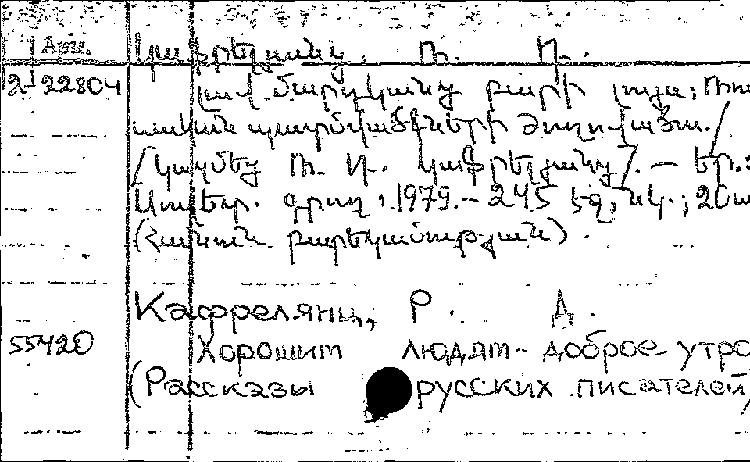 Կաֆրելյանց Ռ. Դ.
2-22804 Լավ մարդկանց բարի լույս; Ռու
սական պատմվածքների ժողովածու.
/Կազմեց Ռ. Դ. Կաֆրելյանց/. — Եր.:
Սովետ. գրող, 1979.- 245 էջ, նկ.; 20ս
(Հանուն բարեկամության).
Кафрелянц, Р. Д.
55420 Хорошим людям- доброе утро
(Рассказы русских писателей)